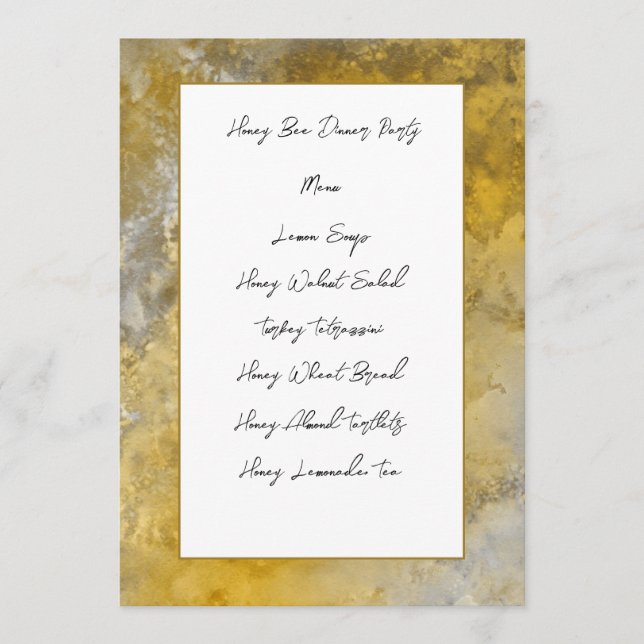 Honey Bee Dinner Party
Menu
Lemon Soup
Honey Walnut Salad
turkey tetrazzini
Honey Wheat Bread
Honey Almond tartlets
Honey Lemonade, tea